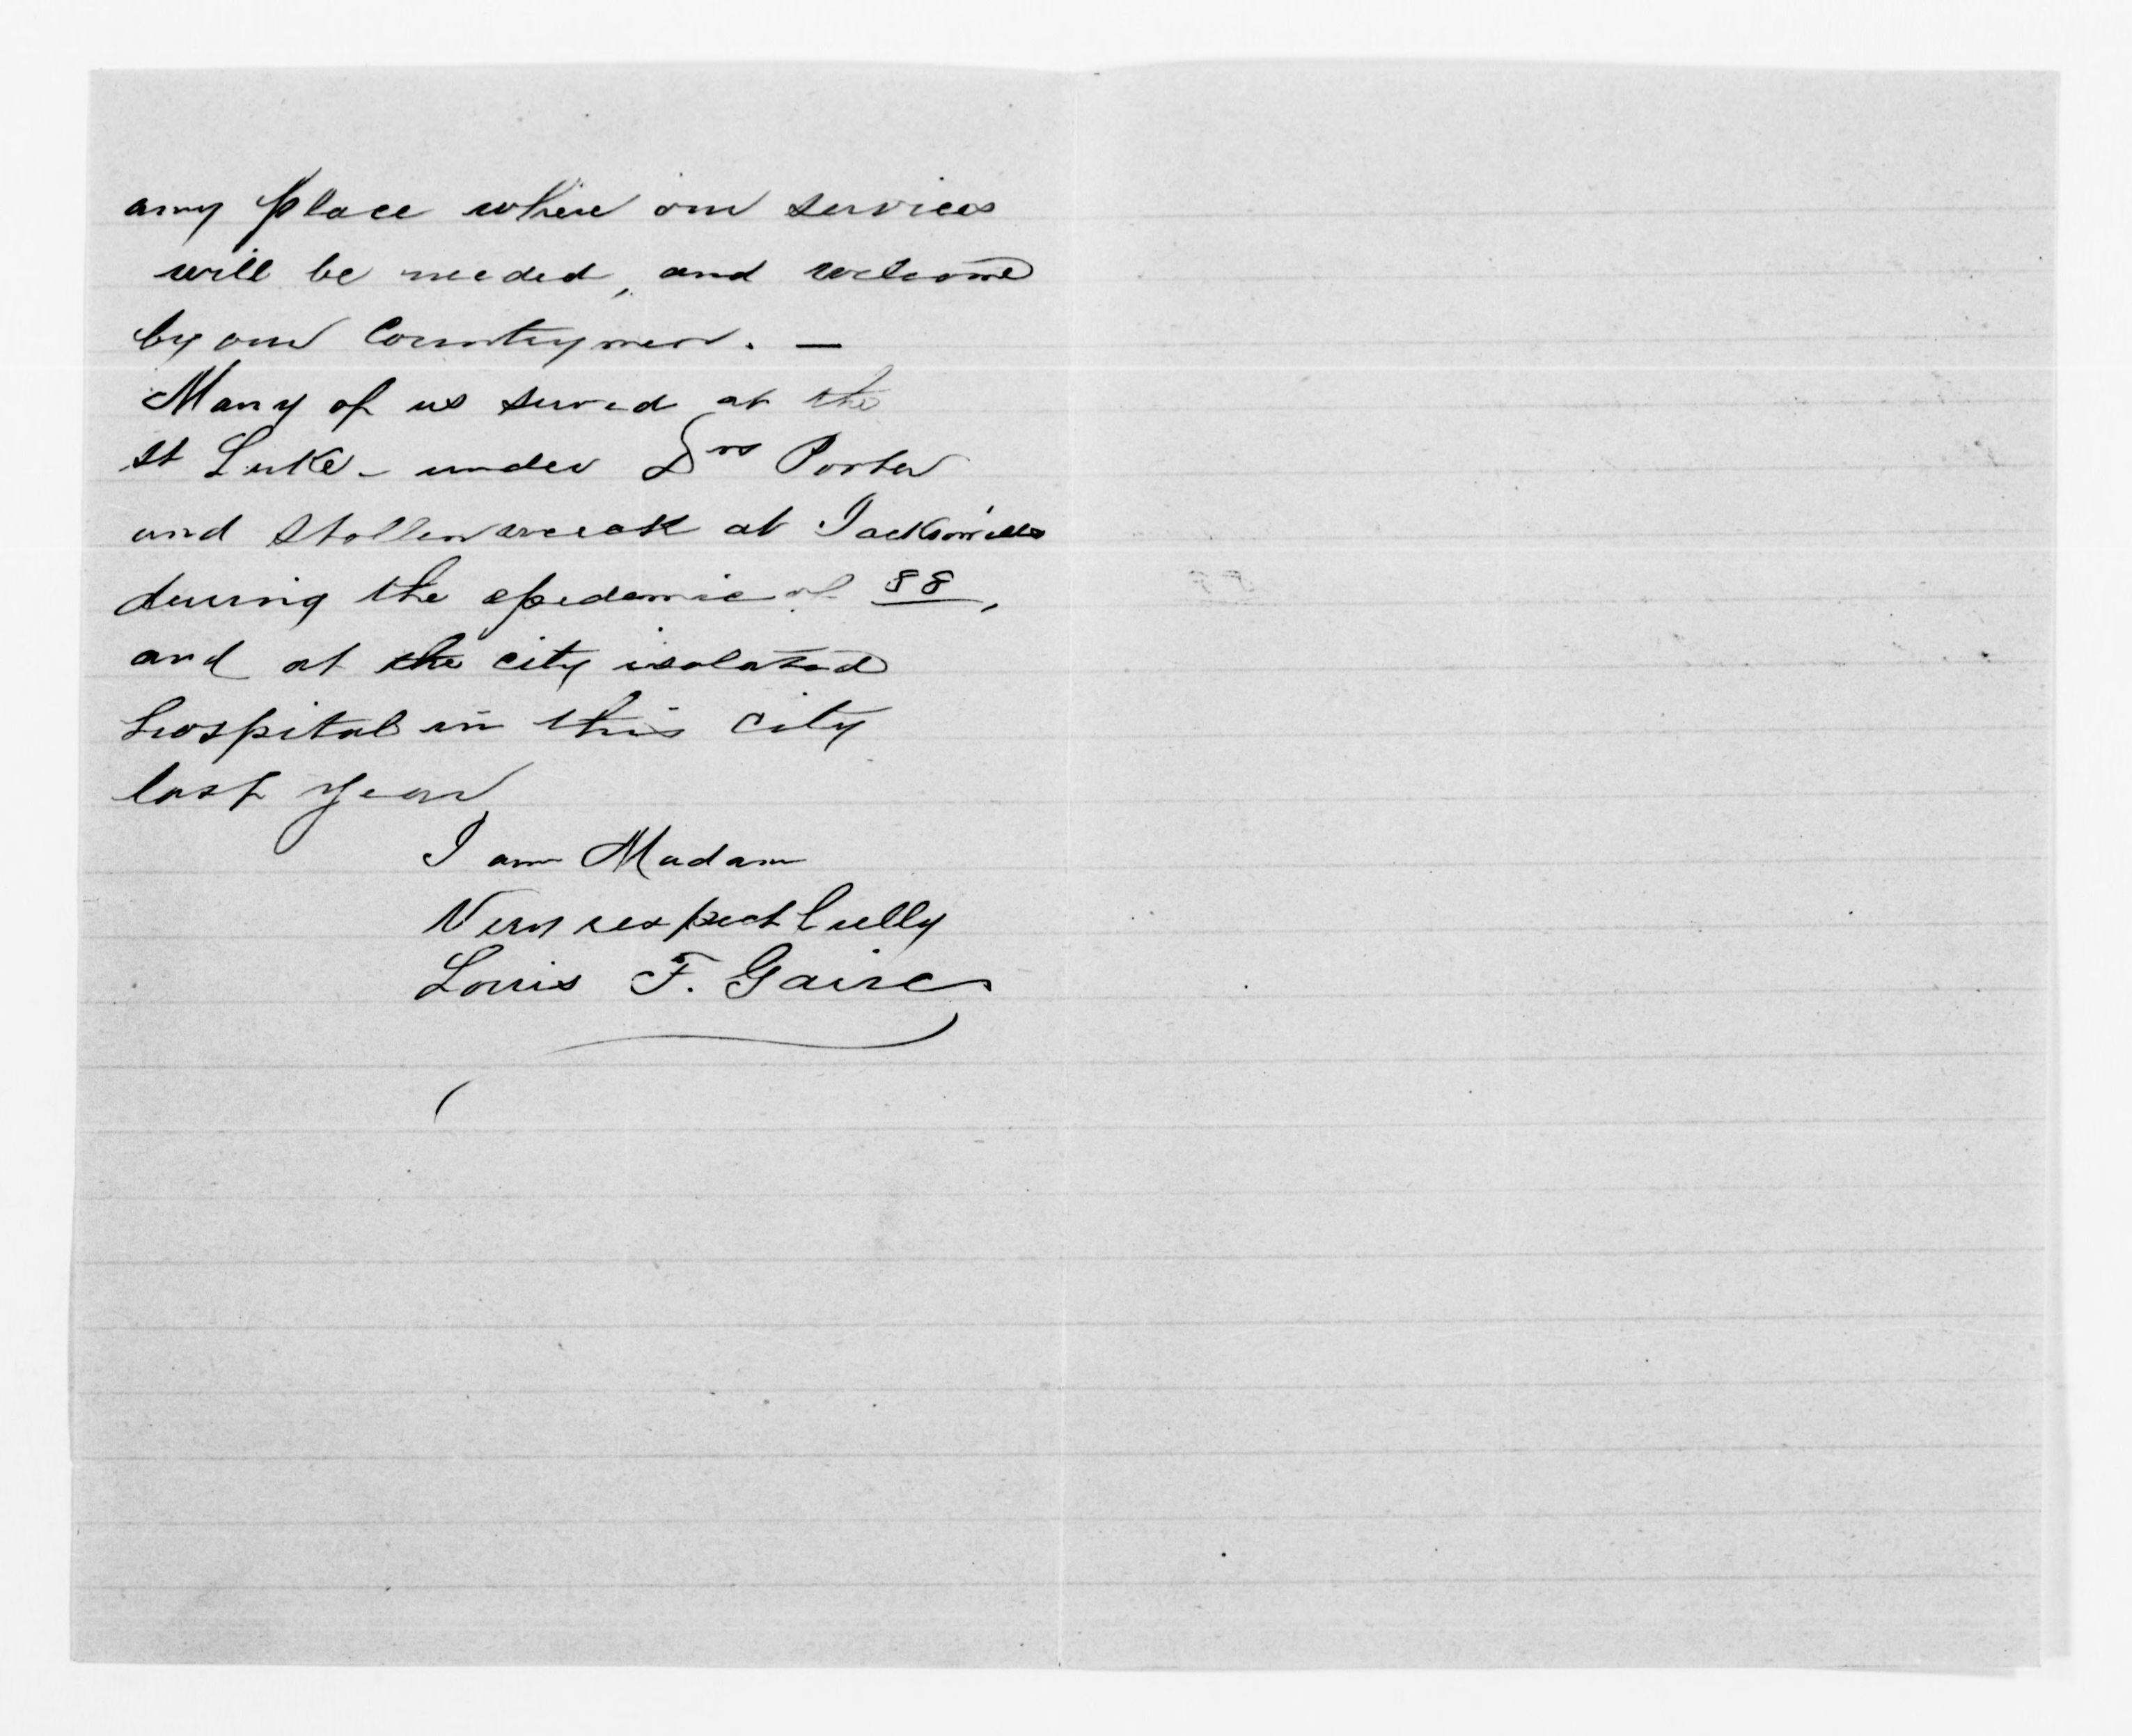 any place where our services
will be needed, and welcome
by our Countrymen. —
Many of us served at the
St Luke - under Drs Porter
and Stollenwerck at Jacksonville
during the epedemic of 88,
and at the city isolated
hospital in this city
last year
I am Madam
Very respectfully
Louis F.